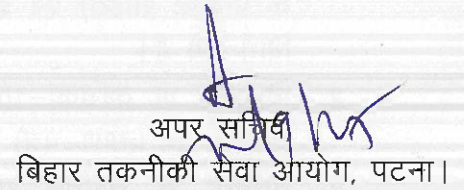 अपर सचिव
बिहार तकनीकी सेवा आयोग, पटना।